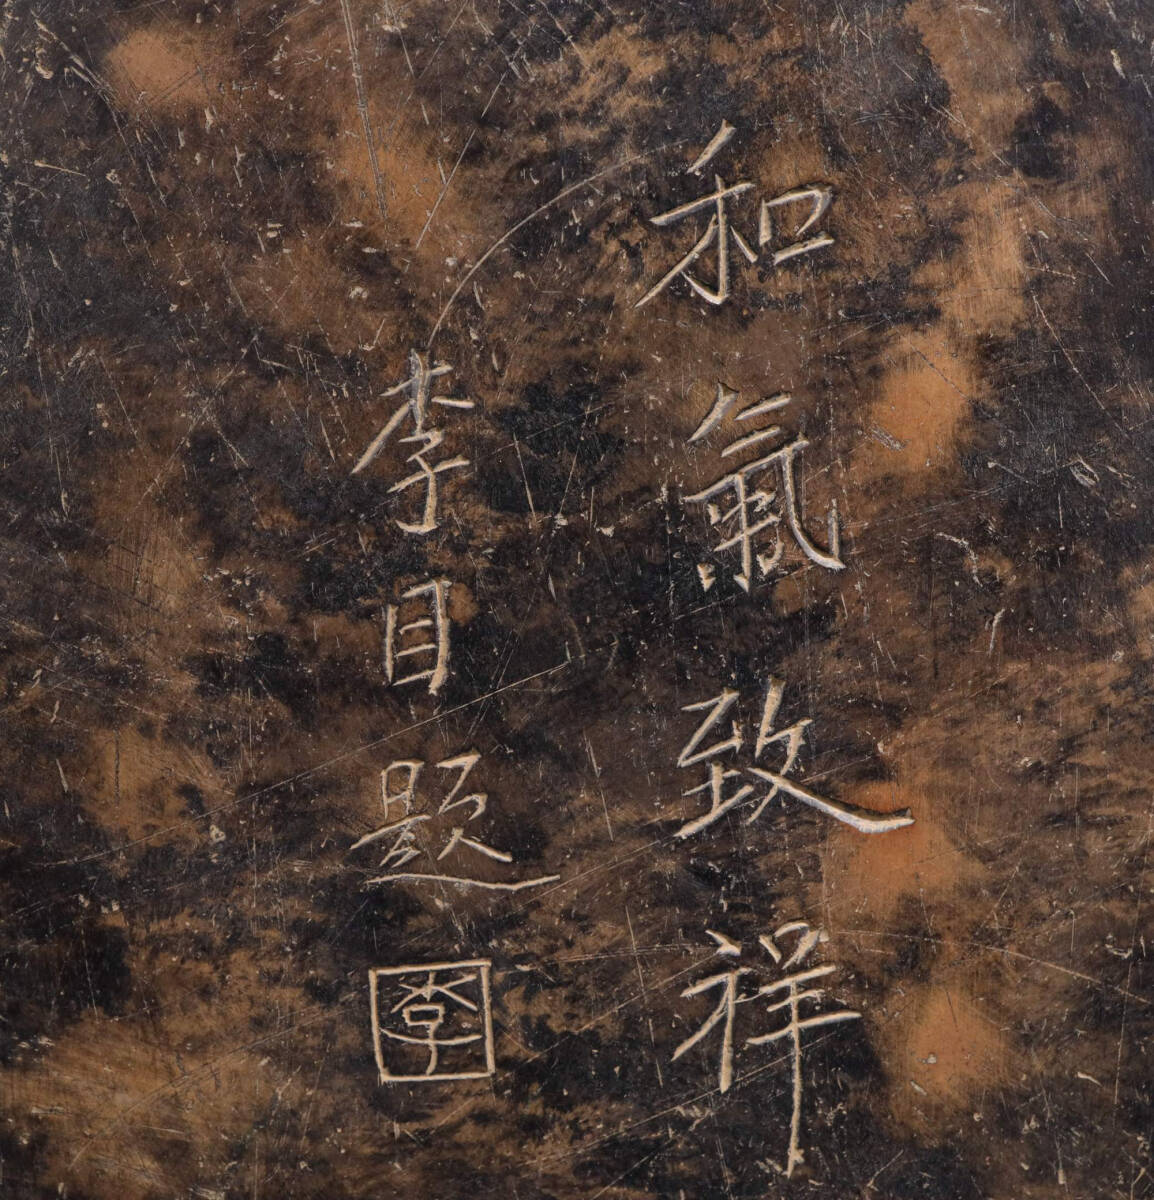 和氣致祥
李目題
李